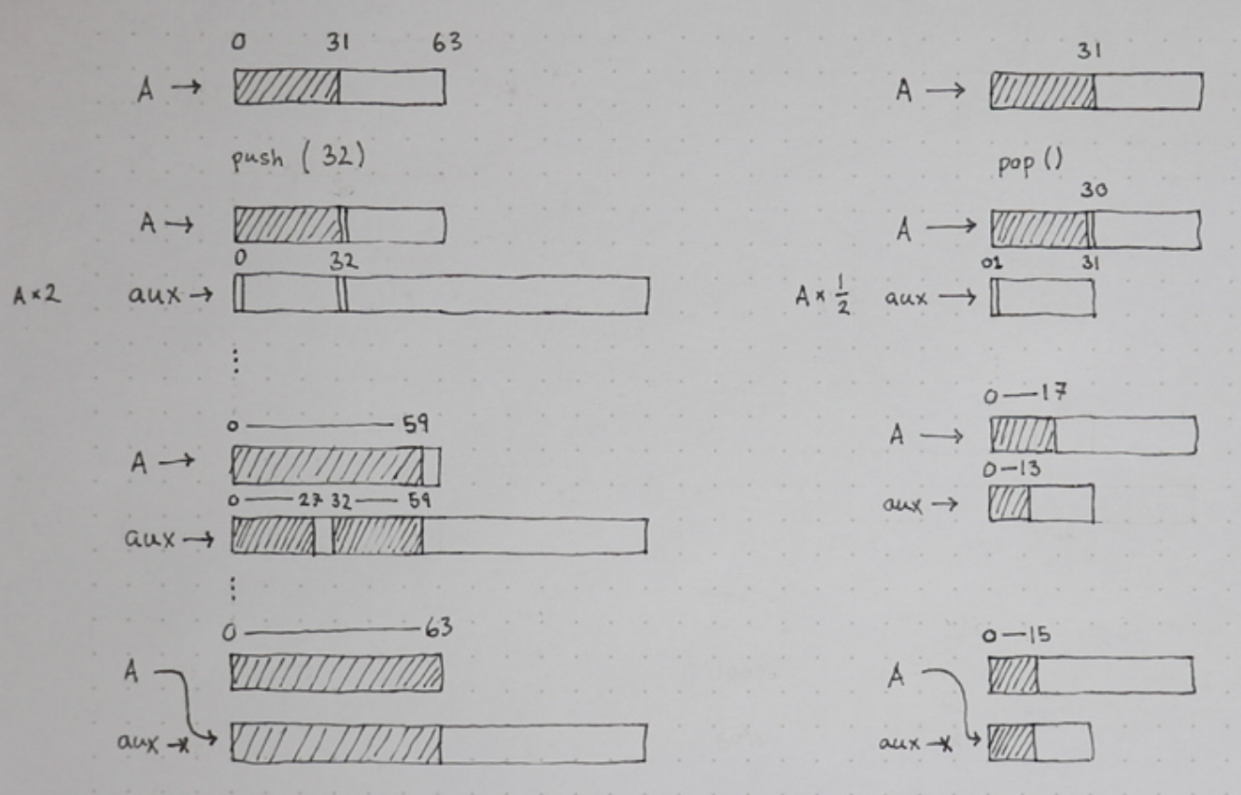 0 31 63
A →
push (32)
A →
0 32
A×2 aux →
⋮
0 —— 59
A →
0 —— 27 32 —— 59
aux →
⋮
0 —— 63
A
aux →
31
A →
pop ()
30
A →
01 31
A × 1/2 aux →
0 — 17
A →
0 — 13
aux →
0 — 15
A
aux →